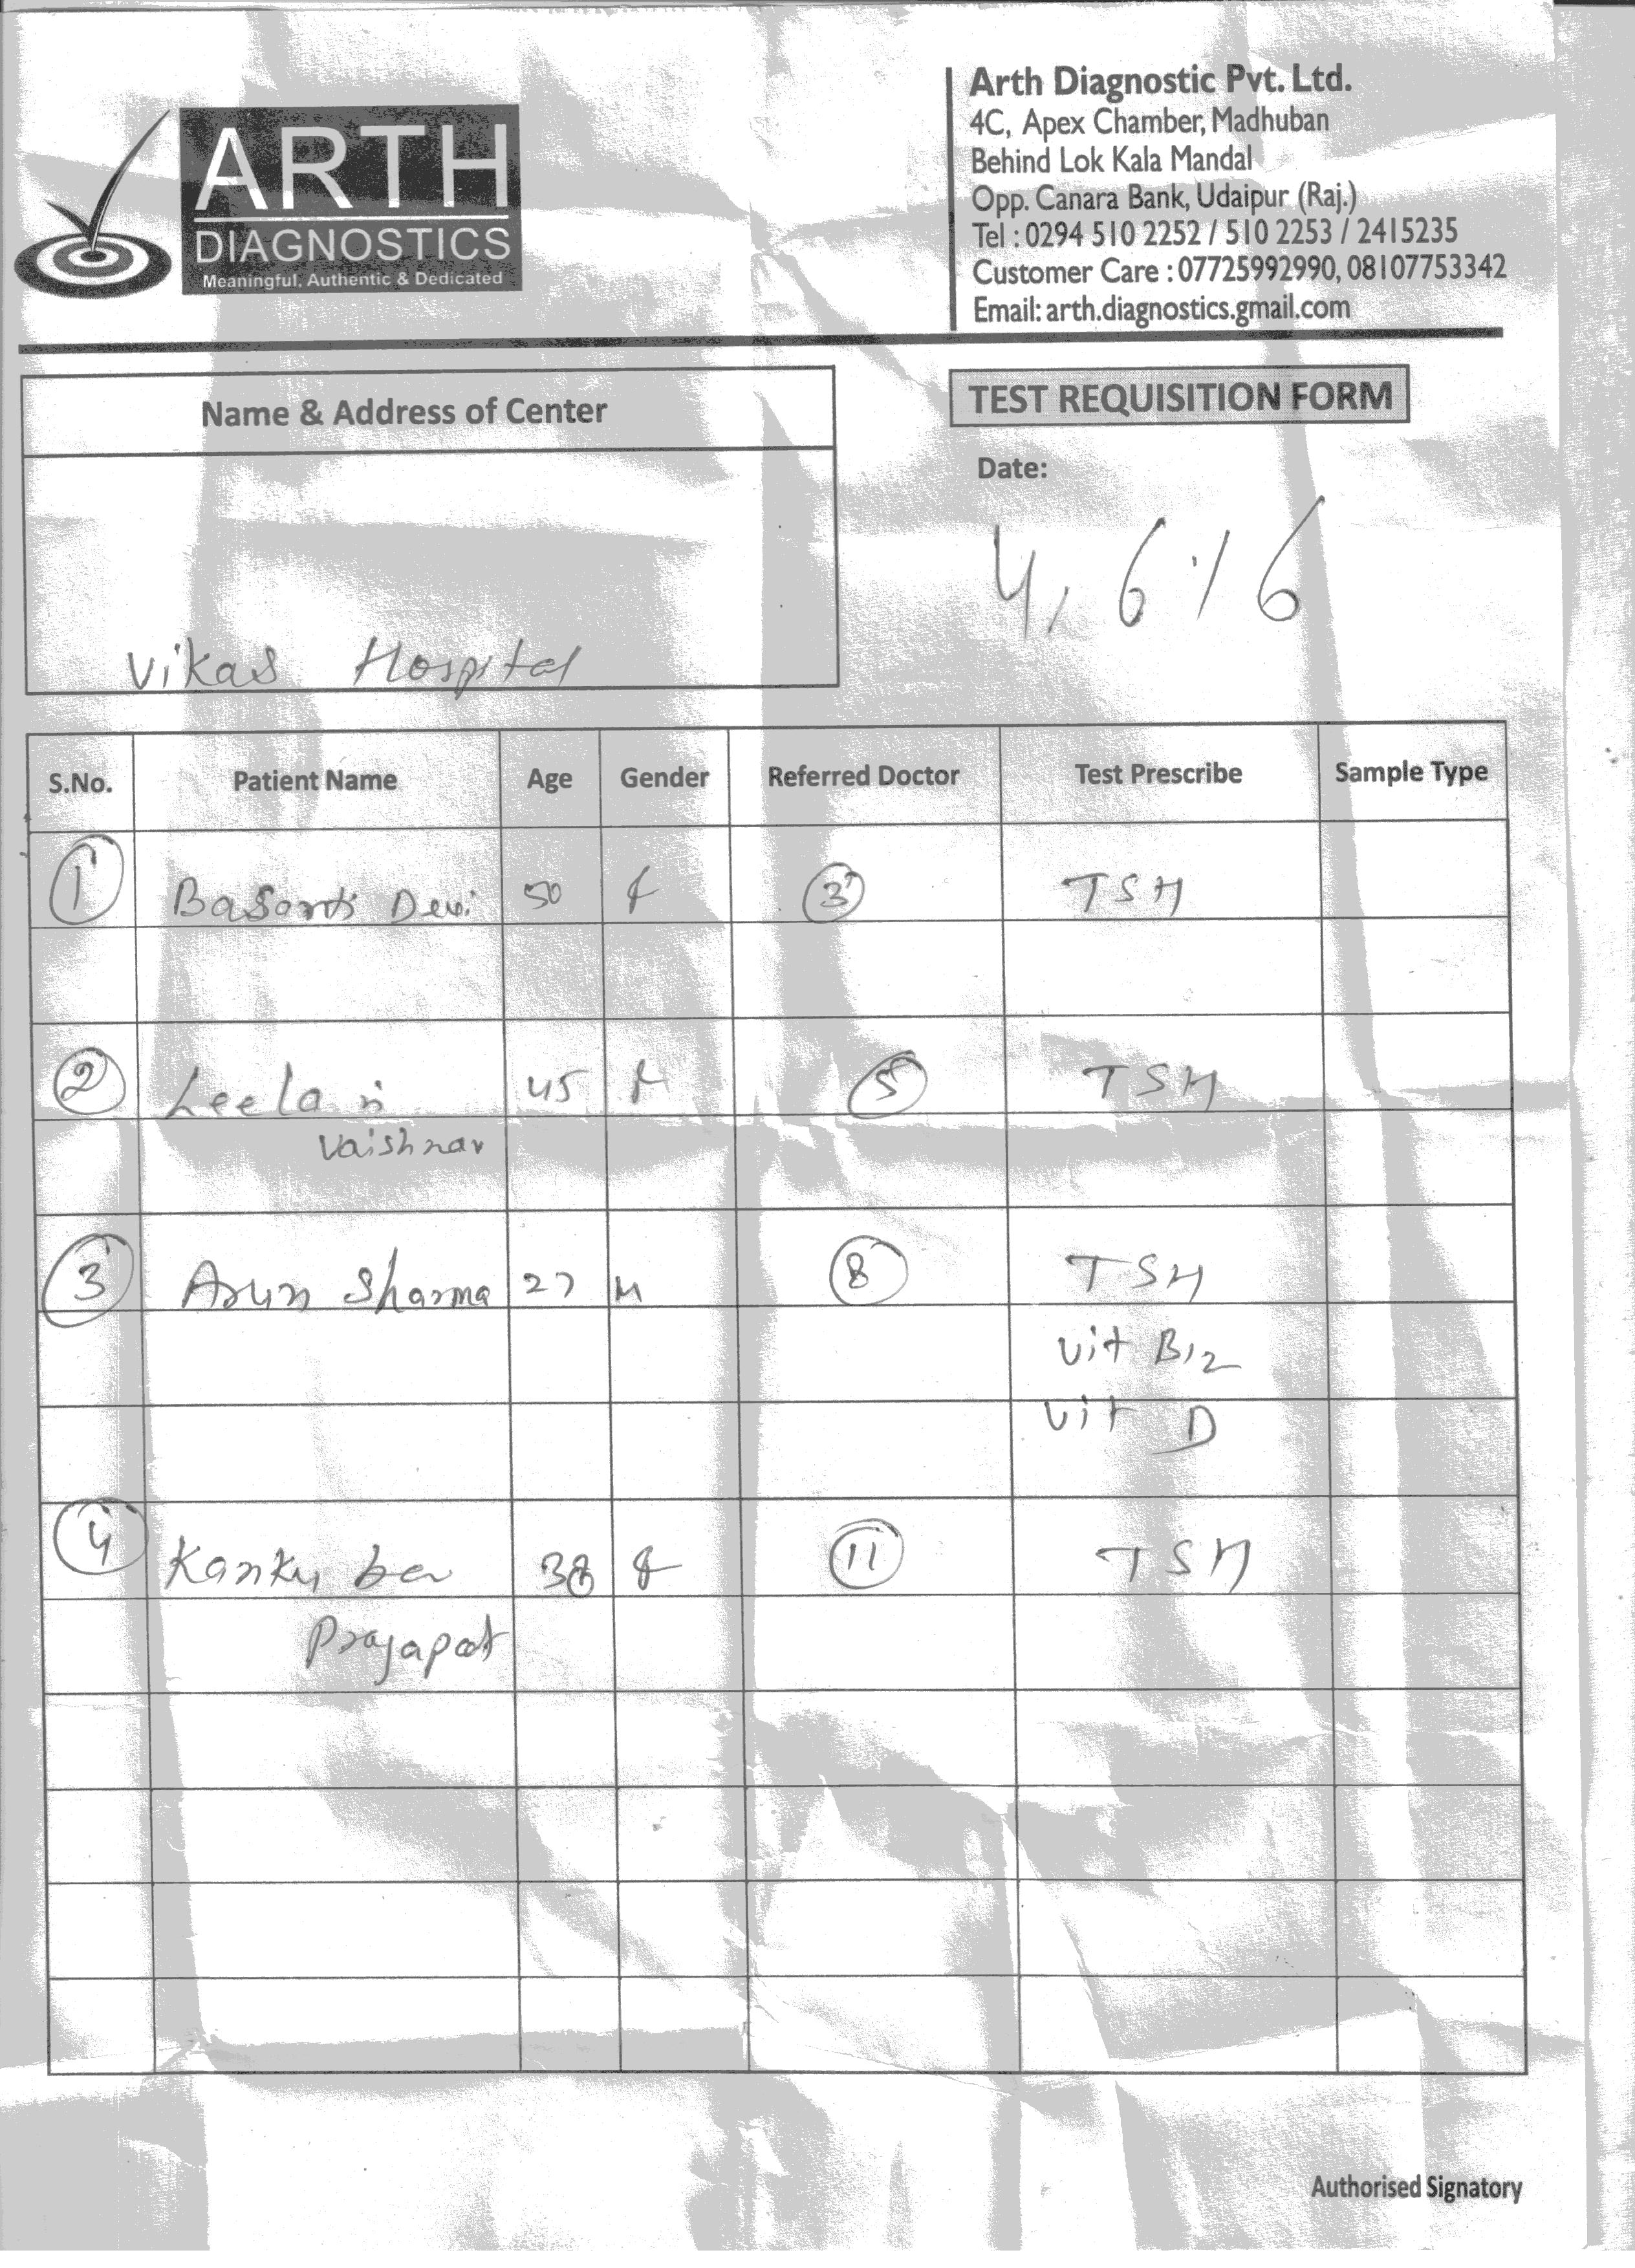 ARTH
DIAGNOSTICS
Meaningful, Authentic & Dedicated
Arth Diagnostic Pvt. Ltd.
4C, Apex Chamber, Madhuban
Behind Lok Kala Mandal
Opp. Canara Bank, Udaipur (Raj.)
Tel : 0294 510 2252 / 510 2253 / 2415235
Customer Care : 07725992990, 08107753342
Email: arth.diagnostics.gmail.com
Name & Address of Center
TEST REQUISITION FORM
Date:
4, 6'16
Vikas Hospital
S.No. Patient Name Age Gender Referred Doctor Test Prescribe Sample Type
1 Basanti Devi 50 f 3 TSH
2 Leela 45 5 TSH
Vaishnav
3 Arun Sharma 27 M 8 TSH
Vit B12
Vit D
4 Kanku 38 f 11 TSH
Prajapat
Authorised Signatory